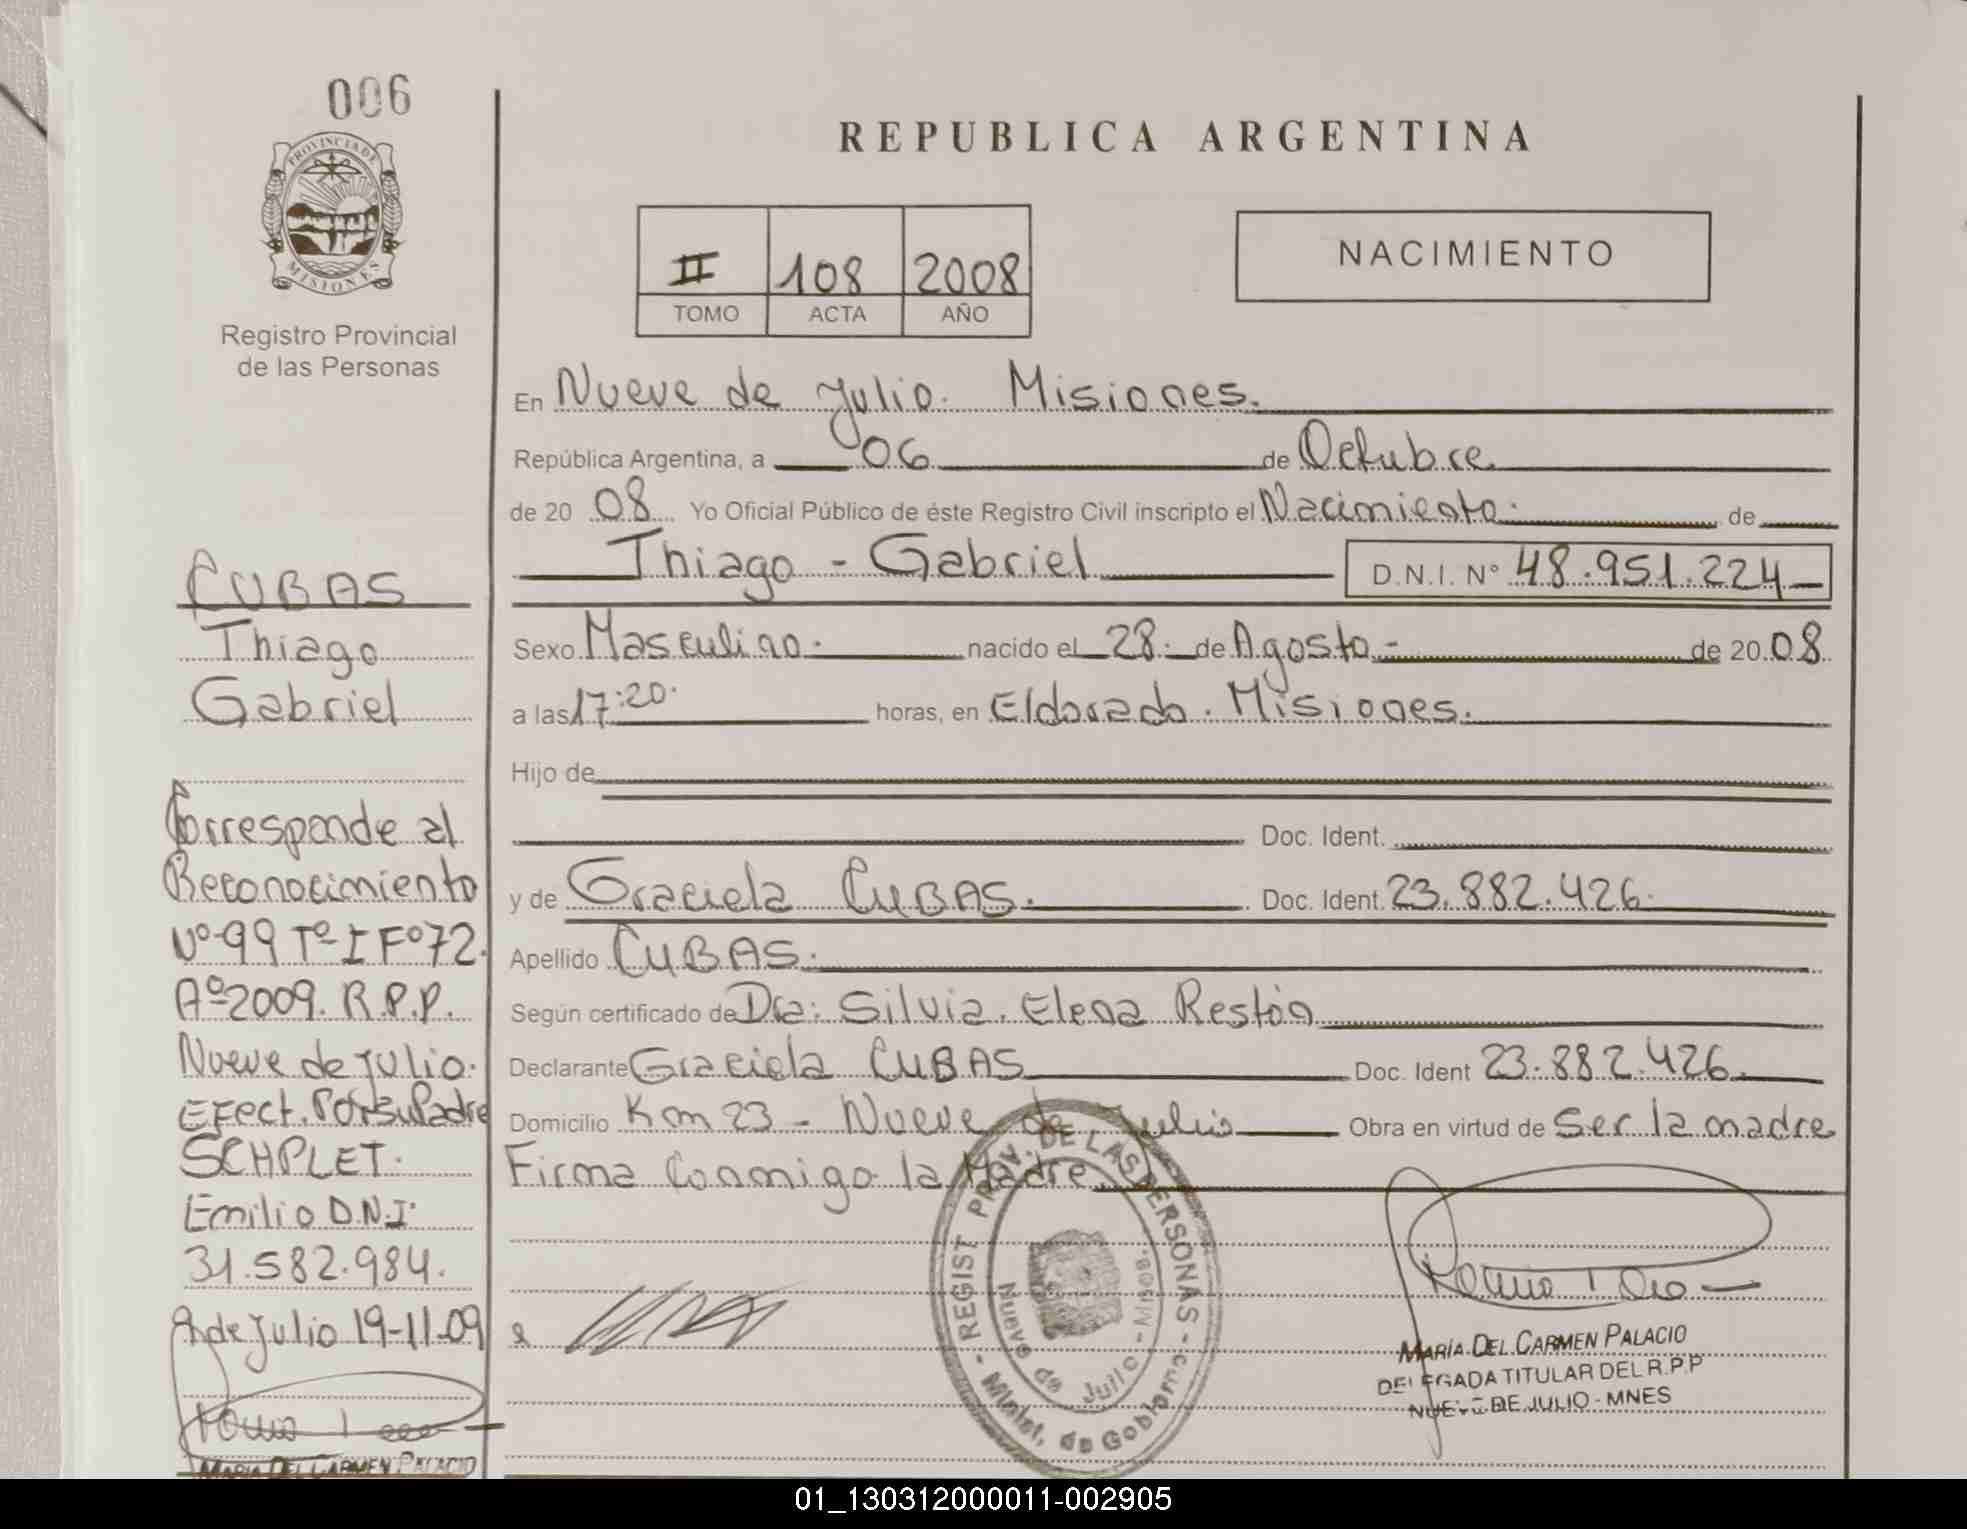 006
PROVINCIA DE
MISIONES
Registro Provincial
de las Personas
CUBAS
Thiago
Gabriel
Corresponde al
Reconocimiento
Nº 99 Tº I Fº 72.
Aº 2009. R.P.P.
Nueve de Julio.
Efect. Por su Padre
SCHPLET.
Emilio D.N.I.
31.582.984.
9 de Julio 19-11-09
MARIA DEL CARMEN PALACIO
REPUBLICA ARGENTINA
II 108 2008
TOMO ACTA AÑO
NACIMIENTO
En Nueve de Julio. Misiones.
República Argentina, a 06 de Octubre
de 20 08 Yo Oficial Público de éste Registro Civil inscripto el Nacimiento. de
Thiago - Gabriel D.N.I. Nº 48.951.224
Sexo Masculino. nacido el 28. de Agosto - de 20 08
a las 17:20. horas, en Eldorado. Misiones.
Hijo de
Doc. Ident.
y de Graciela CUBAS. Doc. Ident. 23.882.426.
Apellido CUBAS.
Según certificado de Dra: Silvia. Elena Restón
Declarante Graciela CUBAS Doc. Ident 23.882.426.
Domicilio Km 23 - Nueve de Julio Obra en virtud de Ser la madre
Firma Conmigo la Madre
- REGIST PROV. DE LAS PERSONAS -
Minist. de Gobierno
Nueve de Julio - Mnes.
MARIA DEL CARMEN PALACIO
DELEGADA TITULAR DEL R.P.P
NUEVE DE JULIO - MNES
01_130312000011-002905